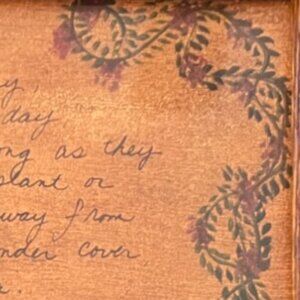 y,
day
ong as they
plant or
away from
nder cover